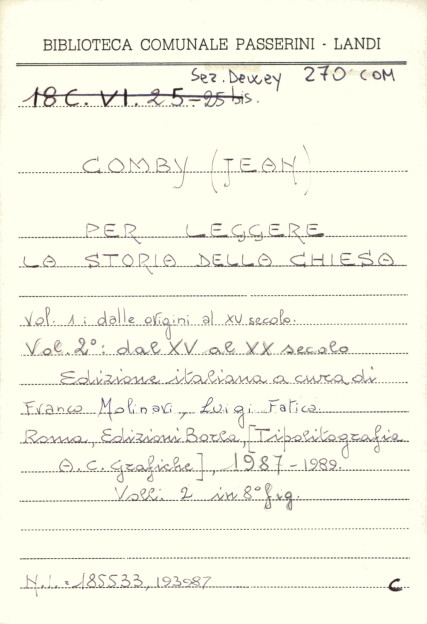 BIBLIOTECA COMUNALE PASSERINI - LANDI
Sez. Dewey 270 COM
18 C. VI. 25-25 bis.
COMBY (JEAN)
PER LEGGERE
LA STORIA DELLA CHIESA
Vol. 1: dalle origini al XV secolo.
Vol. 2º: dal XV al XX secolo
Edizione italiana a cura di
Franco Molinari, Luigi Fatica.
Roma, Edizioni Borla, [Tipolitografia
A. C. Grafiche], 1987-1989.
Voll. 2 in 8º fig.
N.I.: 185533, 193987
C